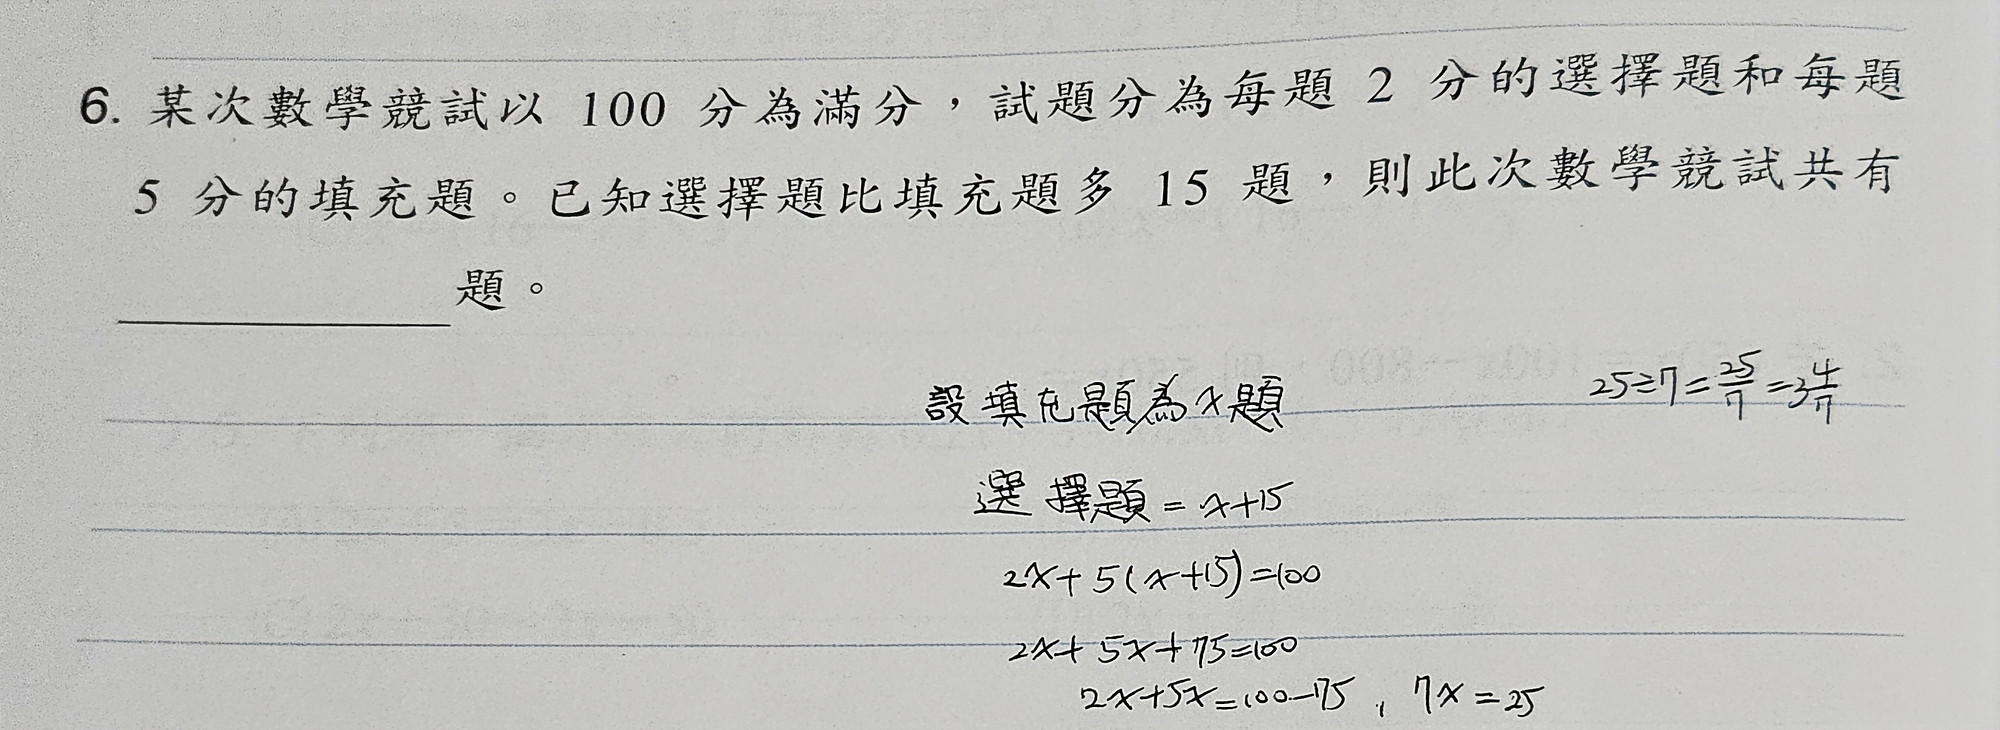 6. 某次數學競試以 100 分為滿分，試題分為每題 2 分的選擇題和每題
5 分的填充題。已知選擇題比填充題多 15 題，則此次數學競試共有
題。
設填充題為x題
25÷7=25/7=3 4/7
選擇題=x+15
2x+5(x+15)=100
2x+5x+75=100
2x+5x=100-75, 7x=25